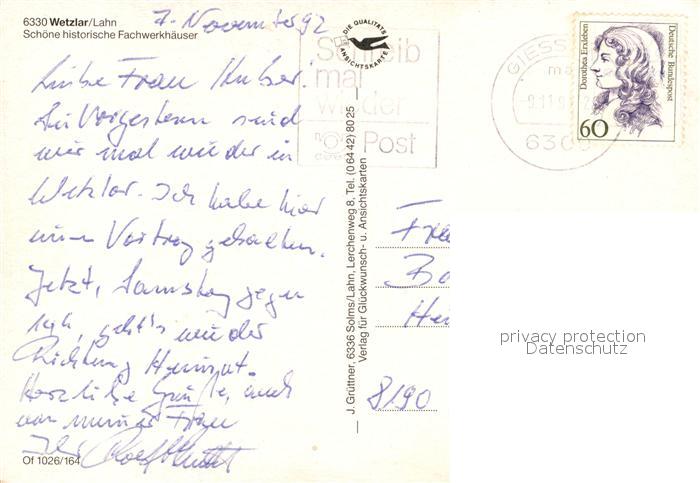 6330 Wetzlar/Lahn
Schöne historische Fachwerkhäuser
7. November 92
DIE QUALITÄTS
ANSICHTSKARTE
Schreib
mal
wieder
Post
GIESSEN
9.11.9
630
Dorothea Erxleben
Deutsche Bundespost
60
Liebe Frau Huber!
Seit Vorgestern sind
wir mal wieder in
Wetzlar. Ich habe hier
einen Vortrag gehalten.
Jetzt, Samstag gegen
geht's wieder
Richtung Heimat.
Herzliche Grüße, auch
von meiner Frau
Ihr
J. Grüttner, 6336 Solms/Lahn, Lerchenweg 8, Tel. (0 64 42) 80 25
Verlag für Glückwunsch- u. Ansichtskarten
8190
privacy protection
Datenschutz
Of 1026/164